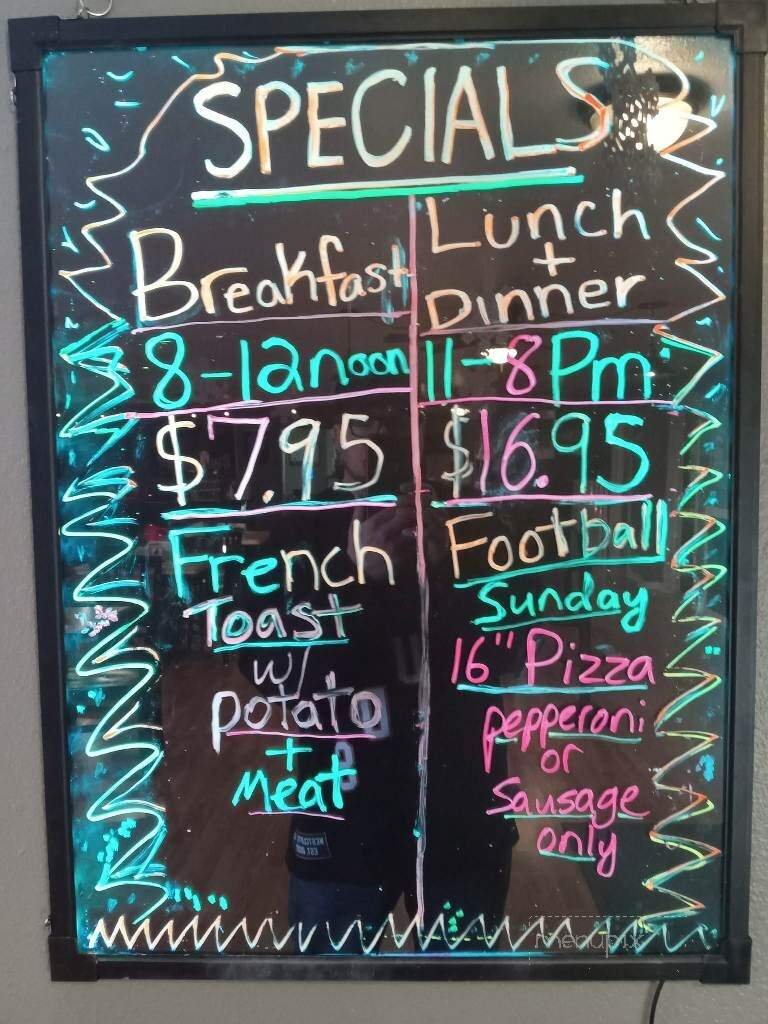 SPECIALS
Breakfast
8-12noon
$7.95
French
Toast
w/
potato
+
Meat
Lunch
+
Dinner
11-8Pm
$16.95
Football
Sunday
16" Pizza
pepperoni
or
Sausage
only
menupix